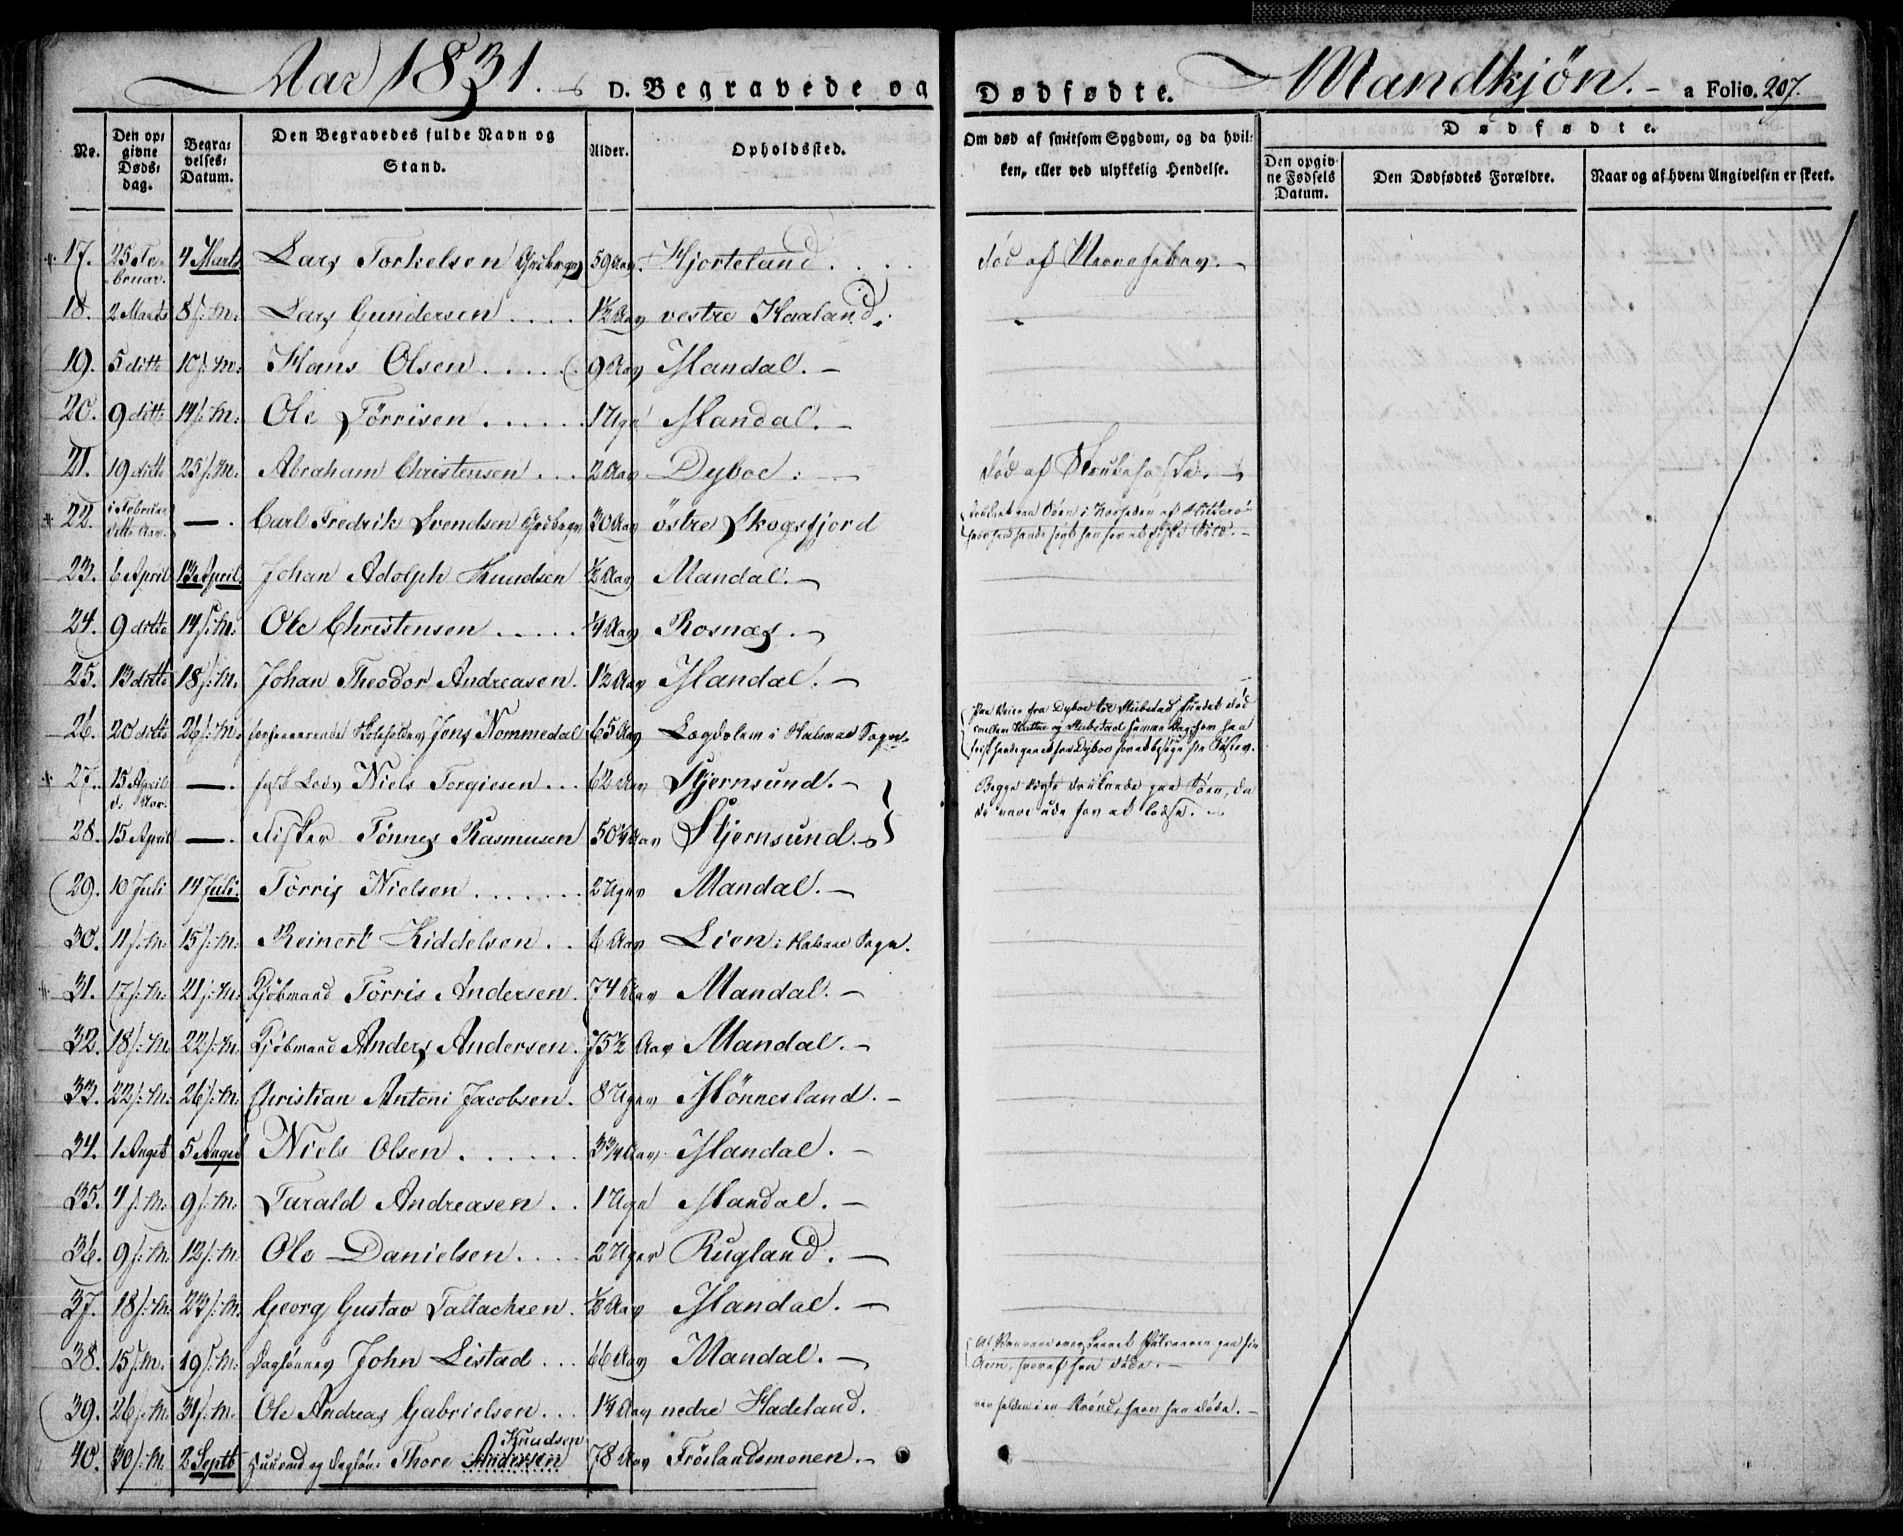 Aar 1831. D. Begravede og Dødfødte. Mandkjøn. a Folio. 207.
No. Den opgivne Døds-dag. Begravelses-Datum. Den Begravedes fulde Navn og Stand. Alder. Opholdssted. Om død af smitsom Sygdom, og da hvilken, eller ved ulykkelig Hendelse. Dødfødte. Den opgivne Fødsels Datum. Den Dødfødtes Forældre. Naar og af hvem Angivelsen er skeet.
17. 25 Februar. 4 Marts Lars Torkelsen 59 Aar. Hjorteland. død af
18. 2 Marts 8 s: M: Lars Gundersen 1½ Aar vestre Haaland.
19. 5 ditto 10 s: M: Hans Olsen 9 Aar Mandal.
20. 9 ditto 14 s: M: Ole Tørrisen 1 Uge Mandal.
21. 19 ditto 25 s: M: Abraham Christensen 2 Aar Dyboe. død af
22. i Februar ditto Aar. — Carl Fredrik Svendsen 30 Aar östre Skogsfjord
23. 6 April 13 April Johan Adolph Knudsen ½ Aar Mandal.
24. 9 ditto 14 s: M: Ole Christensen ¼ Aar Rosnæs.
25. 13 ditto 18 s: M. Johan Theodor Andreasen. 1½ Aar Mandal.
26. 20 ditto 26 s: M: Jens Nommedal 65 Aar i Halsaae Sogn. Paa Veien fra Dyboe til
27. 15 April d. Aar. — Lods Niels Torgiesen 62 Aar Stjernsund. Begge druknede paa Søen, da
28. 15 April — Fisker Tønnes Rasmusen 50¼ Aar Stjernsund. de vare ude for at lodse.
29. 10 Juli 14 Juli. Tørris Nielsen 2 Uger Mandal.
30. 11 s: M: 15 s: M: Reinert Kiddelsen 6 Aar Lien i Halsaae Sogn.
31. 17 s: M. 21 s: M: Kjøbmand Tørris Andersen. 74 Aar Mandal.
32. 18 s: M. 22 s: M. Kjøbmand Anders Andersen. 75½ Aar Mandal.
33. 22 s: M: 26 s: M: Christian Antoni Jacobsen. 8 Uger Mønnesland.
34. 1 Augst 5 Augst Niels Olsen 3¾ Aar. Mandal.
35. 4 s: M: 9 s: M: Tarald Andreasen 1 Uge Mandal.
36. 9 s: M: 12 s: M Ole Danielsen 2 Uger Rugland.
37. 18 s: M: 23 s: M. Georg Gustav Tallachsen. ½ Aar Mandal.
38. 15 s: M. 19 s: M: Daglønner John Listad 66 Aar Mandal. Arm, hvoraf han døde.
39. 26 s: M 31 s: M. Ole Andreas Gabrielsen 1¼ Aar nedre Hadeland. hvor han døde.
40. 30 s: M. 2 Septb Huusmd og Dagløn: Thore Andersen Knudsen 78 Aar Frøslandsmonen.